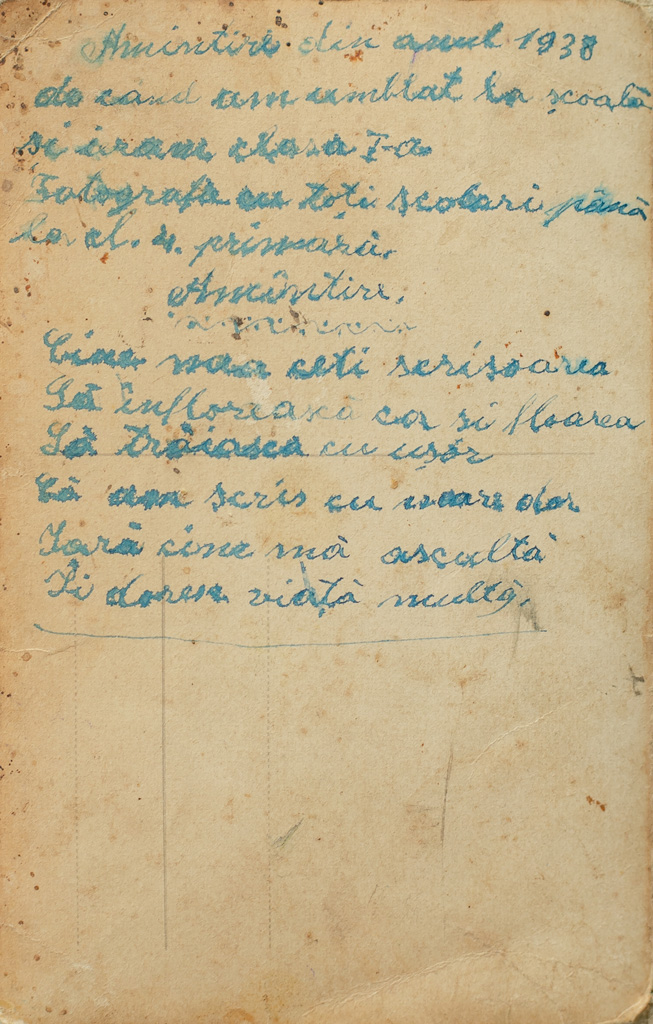 Amintire din anul 1938
de când am umblat la școală
si eram clasa I-a
Fotografie cu toți scolari până
la cl. 4. primară.
Amintire.
Cine va ceti scrisoarea
Să înflorească ca si floarea
Să trăiasca cu ușor
Că am scris cu mare dor
Iară cine mă ascultă
Îi doresc viață multă.